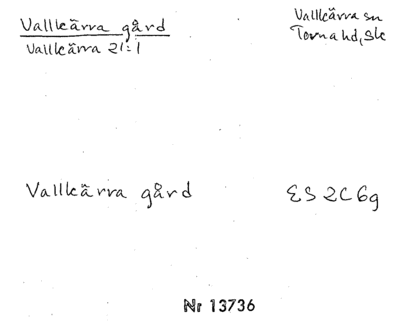 Vallkärra gård
Vallkärra 21:1
Vallkärra sn
Torna hd, Sk
Vallkärra gård
ES 2C 6g
Nr 13736